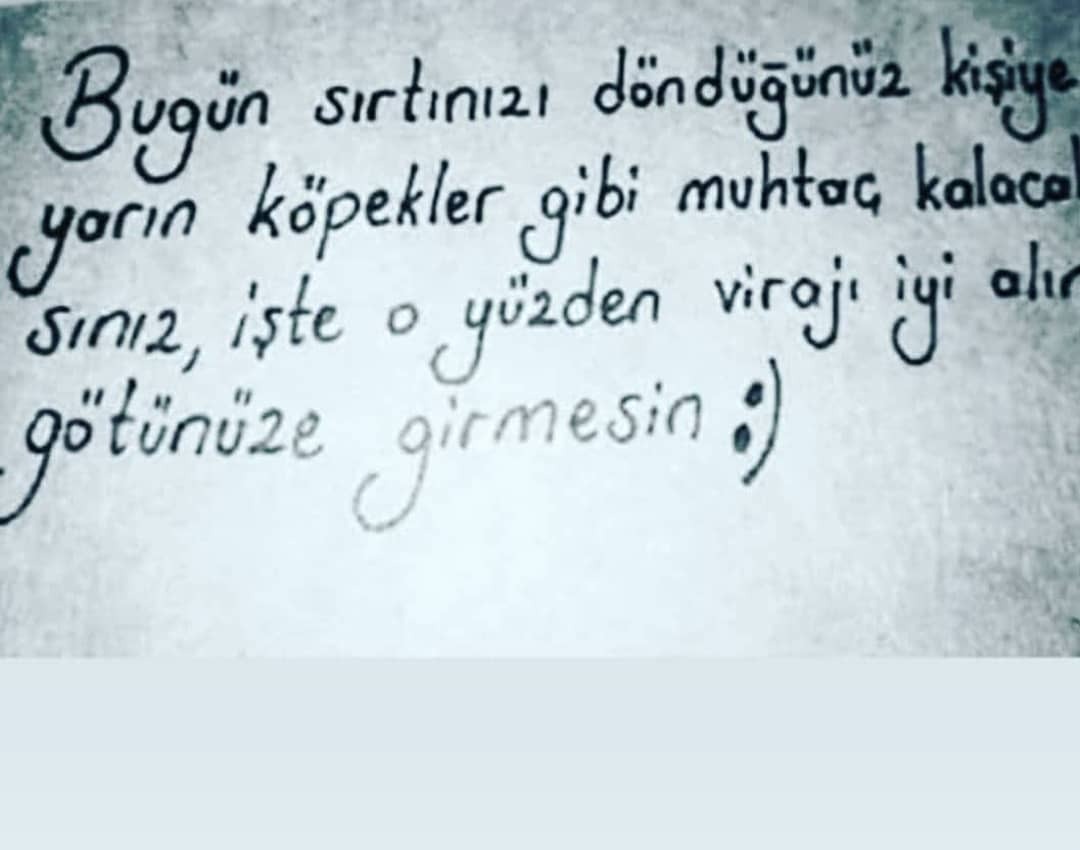 Bugün sırtınızı döndüğünüz kişiye
yarın köpekler gibi muhtaç kalacak
sınız, işte o yüzden virajı iyi alın
götünüze girmesin ;)